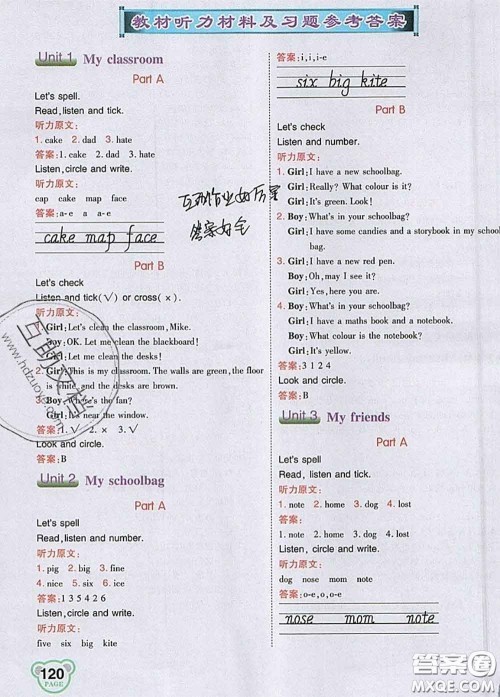 教材听力材料及习题参考答案
Unit 1 My classroom
Part A
Let's spell.
Read, listen and tick.
听力原文:
1. cake 2. dad 3. hate
答案:1. cake 2. dad 3. hate
Listen, circle and write.
听力原文:
cap cake map face
答案:a-e a a-e
cake map face
Part B
Let's check
Listen and tick(√) or cross(×).
听力原文:
1. Girl: Let's clean the classroom, Mike.
Boy: OK. Let me clean the blackboard!
Girl: Let me clean the desks!
2. Girl: This is my classroom. The walls are green, the floor
is white, and the desks are brown.
3. Boy: Where's the fan?
Girl: It's near the window.
答案:1. √ 2. × 3. √
Look and circle.
答案:B
Unit 2 My schoolbag
Part A
Let's spell
Read, listen and number.
听力原文:
1. pig 2. big 3. fine
4. nice 5. six 6. ice
答案:1 3 5 4 2 6
Listen, circle and write.
听力原文:
five six big kite
120
PAGE
答案:i,i,i-e
six big kite
Part B
Let's check
Listen and number.
听力原文:
1. Girl: I have a new schoolbag.
Girl: Really? What colour is it?
Girl: It's green. Look!
2. Boy: What's in your schoolbag?
Girl: I have some candies and a storybook in my school
bag.
3. Girl: I have a new red pen.
Boy: Oh, may I see it?
Girl: Yes, here you are.
4. Boy: What's in your schoolbag?
Girl: I have a maths and a notebook.
Boy: What colour is the notebook?
Girl: It's yellow.
答案:3 1 2 4
Look and circle.
答案:B
Unit 3 My friends
Part A
Let's spell
Read, listen and tick.
听力原文:
1. note 2. home 3. dog 4. lost
答案:
1. note 2. home 3. dog 4. lost
Listen, circle and write.
听力原文:
dog nose mom note
答案:o-e,o,o-e
nose mom note
互动作业
答案
互助文档
www.hdzuoye.com
答案圈
MXQE.COM